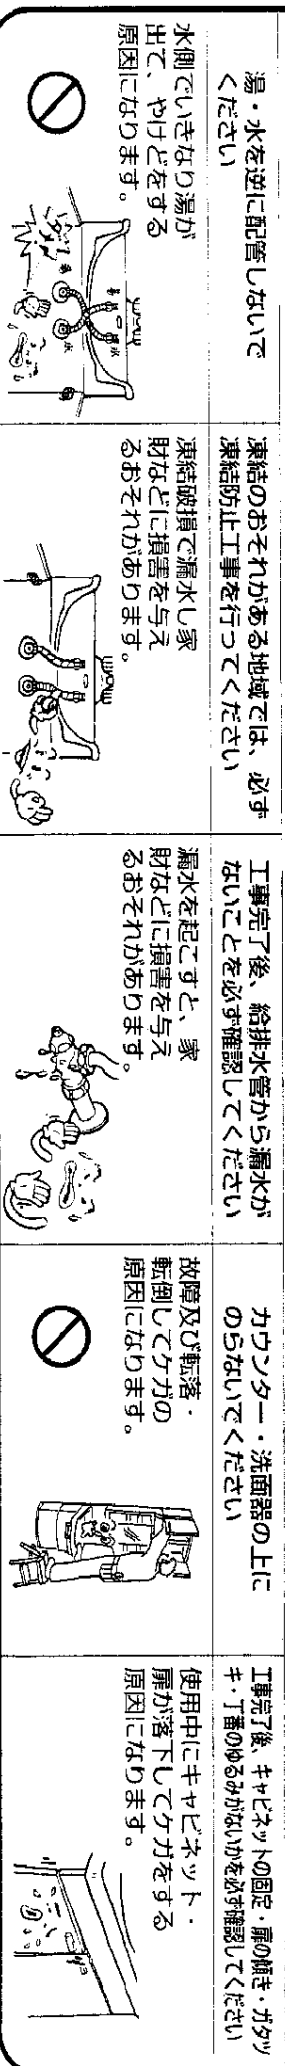 湯・水を逆に配管しないで
ください
水側でいきなり湯が
出て、やけどをする
原因になります。
湯
水
凍結のおそれがある地域では、必ず
凍結防止工事を行ってください
凍結破損で漏水し家
財などに損害を与え
るおそれがあります。
工事完了後、給排水管から漏水が
ないことを必ず確認してください
漏水を起こすと、家
財などに損害を与え
るおそれがあります。
カウンター・洗面器の上に
のらないでください
故障及び転落・
転倒してケガの
原因になります。
工事完了後、キャビネットの固定・扉の傾き・ガタツ
キ・丁番のゆるみがないかを必ず確認してください
使用中にキャビネット・
扉が落下してケガをする
原因になります。